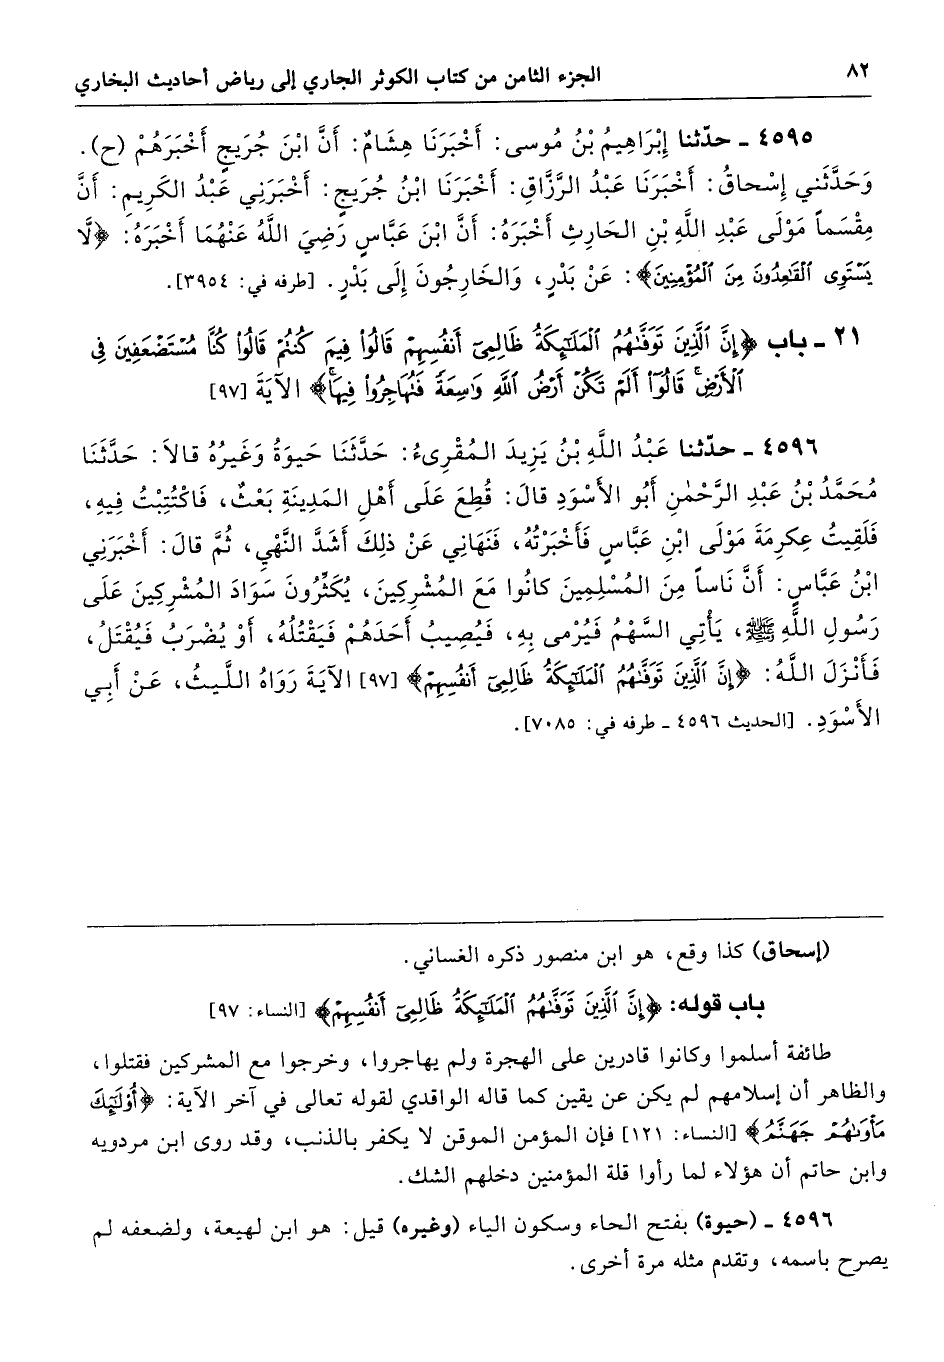 ٨٢
الجزء الثامن من كتاب الكوثر الجاري إلى رياض أحاديث البخاري
٤٥٩٥ ـ حدّثنا إِبْرَاهِيمُ بْنُ مُوسى: أَخْبَرَنَا هِشَامٌ: أَنَّ ابْنَ جُرَيجٍ أَخْبَرَهُمْ (ح).
وَحَدَّثَني إِسْحاقُ: أَخْبَرَنَا عَبْدُ الرَّزَّاقِ: أَخْبَرَنَا ابْنُ جُرَيجٍ: أَخْبَرَنِي عَبْدُ الكَرِيمِ: أَنَّ
مِقْسَماً مَوْلَى عَبْدِ اللَّهِ بْنِ الحَارِثِ أَخْبَرَهُ: أَنَّ ابْنَ عَبَّاسٍ رَضِيَ اللَّهُ عَنْهُمَا أَخْبَرَهُ: ﴿لَّا
يَسْتَوِى ٱلْقَٰعِدُونَ مِنَ ٱلْمُؤْمِنِينَ﴾: عَنْ بَدْرٍ، وَالخَارِجُونَ إِلَى بَدْرٍ. [طرفه في: ٣٩٥٤].
٢١ ـ باب ﴿إِنَّ ٱلَّذِينَ تَوَفَّىٰهُمُ ٱلْمَلَٰٓئِكَةُ ظَالِمِىٓ أَنفُسِهِمْ قَالُوا۟ فِيمَ كُنتُمْ قَالُوا۟ كُنَّا مُسْتَضْعَفِينَ فِى
ٱلْأَرْضِ ۚ قَالُوٓا۟ أَلَمْ تَكُنْ أَرْضُ ٱللَّهِ وَٰسِعَةً فَتُهَاجِرُوا۟ فِيهَا ۚ﴾ الآيَةَ [٩٧]
٤٥٩٦ ـ حدّثنا عَبْدُ اللَّهِ بْنُ يَزِيدَ المُقْرِىءُ: حَدَّثَنَا حَيوَةُ وَغَيرُهُ قالاَ: حَدَّثَنَا
مُحَمَّدُ بْنُ عَبْدِ الرَّحْمٰنِ أَبُو الأَسْوَدِ قالَ: قُطِعَ عَلَى أَهْلِ المَدِينَةِ بَعْثٌ، فَاكْتُتِبْتُ فِيهِ،
فَلَقِيتُ عِكرِمَةَ مَوْلَى ابْنِ عَبَّاسٍ فَأَخْبَرْتُهُ، فَنَهَانِي عَنْ ذلِكَ أَشَدَّ النَّهْيِ، ثُمَّ قالَ: أَخْبَرَنِي
ابْنُ عَبَّاسٍ: أَنَّ نَاساً مِنَ المُسْلِمِينَ كانُوا مَعَ المُشْرِكِينَ، يُكَثِّرُونَ سَوَادَ المُشْرِكِينَ عَلَى
رَسُولِ اللَّهِ ﷺ، يَأْتِي السَّهْمُ فَيُرْمى بِهِ، فَيُصِيبُ أَحَدَهُمْ فَيَقْتُلُهُ، أَوْ يُضْرَبُ فَيُقْتَلُ،
فَأَنْزَلَ اللَّهُ: ﴿إِنَّ ٱلَّذِينَ تَوَفَّىٰهُمُ ٱلْمَلَٰٓئِكَةُ ظَالِمِىٓ أَنفُسِهِمْ﴾ [٩٧] الآيَةَ رَوَاهُ اللَّيثُ، عَنْ أَبِي
الأَسْوَدِ. [الحديث ٤٥٩٦ ـ طرفه في: ٧٠٨٥].
(إسحاق) كذا وقع، هو ابن منصور ذكره الغساني.
باب قوله: ﴿إِنَّ ٱلَّذِينَ تَوَفَّىٰهُمُ ٱلْمَلَٰٓئِكَةُ ظَالِمِىٓ أَنفُسِهِمْ﴾ [النساء: ٩٧]
طائفة أسلموا وكانوا قادرين على الهجرة ولم يهاجروا، وخرجوا مع المشركين فقتلوا،
والظاهر أن إسلامهم لم يكن عن يقين كما قاله الواقدي لقوله تعالى في آخر الآية: ﴿أُو۟لَٰٓئِكَ
مَأْوَىٰهُمْ جَهَنَّمُ﴾ [النساء: ١٢١] فإن المؤمن الموقن لا يكفر بالذنب، وقد روى ابن مردويه
وابن حاتم أن هؤلاء لما رأوا قلة المؤمنين دخلهم الشك.
٤٥٩٦ ـ (حيوة) بفتح الحاء وسكون الياء (وغيره) قيل: هو ابن لهيعة، ولضعفه لم
يصرح باسمه، وتقدم مثله مرة أخرى.